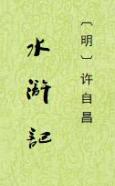 〔明〕许自昌
水浒記